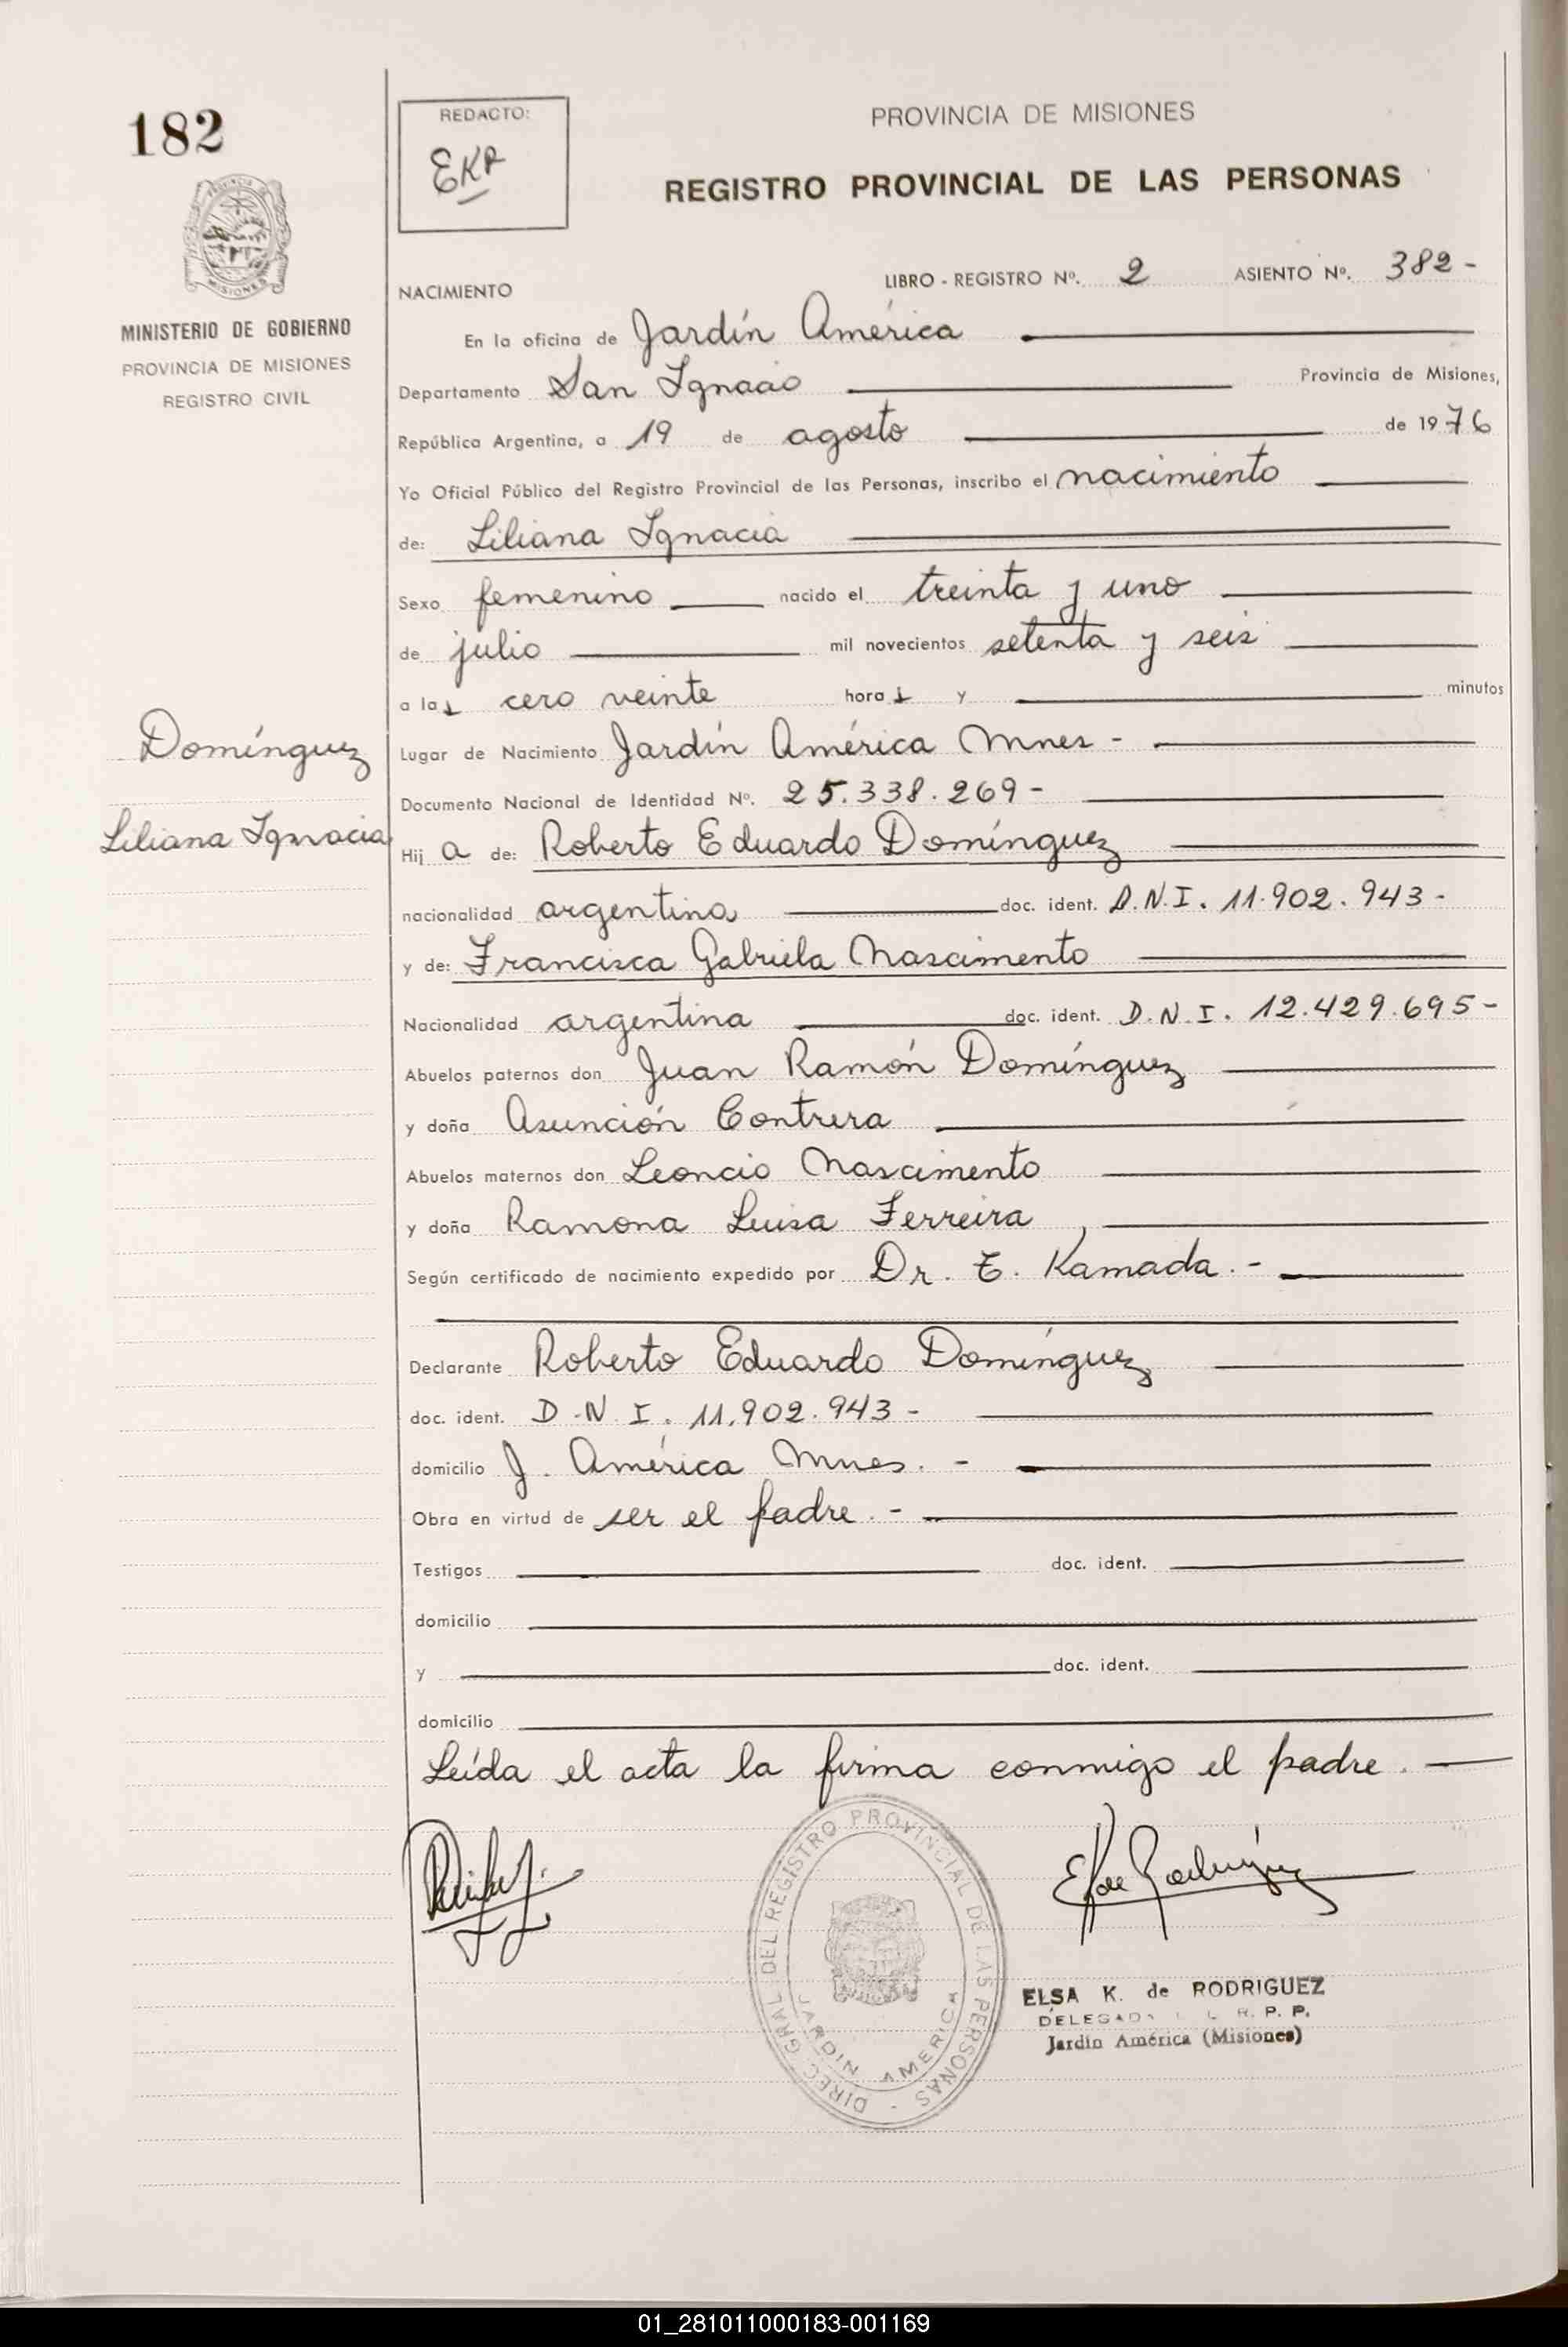 182
REDACTO:
EKR
PROVINCIA DE MISIONES
REGISTRO PROVINCIAL DE LAS PERSONAS
MISIONES
MINISTERIO DE GOBIERNO
PROVINCIA DE MISIONES
REGISTRO CIVIL
NACIMIENTO
LIBRO - REGISTRO Nº. 2 ASIENTO Nº. 382 -
En la oficina de Jardín América
Departamento San Ignacio Provincia de Misiones,
República Argentina, a 19 de agosto de 1976
Yo Oficial Público del Registro Provincial de las Personas, inscribo el nacimiento
de: Liliana Ignacia
Sexo femenino nacido el treinta y uno
de julio mil novecientos setenta y seis
a las cero veinte horas y minutos
Lugar de Nacimiento Jardín América Mnes -
Documento Nacional de Identidad Nº. 25.338.269 -
Domínguez
Liliana Ignacia
Hij a de: Roberto Eduardo Domínguez
nacionalidad argentina doc. ident. D.N.I. 11.902.943 -
y de: Francisca Gabriela Nascimento
Nacionalidad argentina doc. ident. D.N.I. 12.429.695 -
Abuelos paternos don Juan Ramón Domínguez
y doña Asunción Contrera
Abuelos maternos don Leoncio Nascimento
y doña Ramona Luisa Ferreira
Según certificado de nacimiento expedido por Dr. T. Kamada. -
Declarante Roberto Eduardo Domínguez
doc. ident. D.N.I. 11.902.943 -
domicilio J. América Mnes. -
Obra en virtud de ser el padre. -
Testigos doc. ident.
domicilio
y doc. ident.
domicilio
Leída el acta la firma conmigo el padre.
DIREC. GRAL. DEL REGISTRO PROVINCIAL DE LAS PERSONAS -
JARDIN AMERICA
EK de Rodríguez
ELSA K. de RODRIGUEZ
R. P. P.
Jardín América (Misiones)
01_281011000183-001169